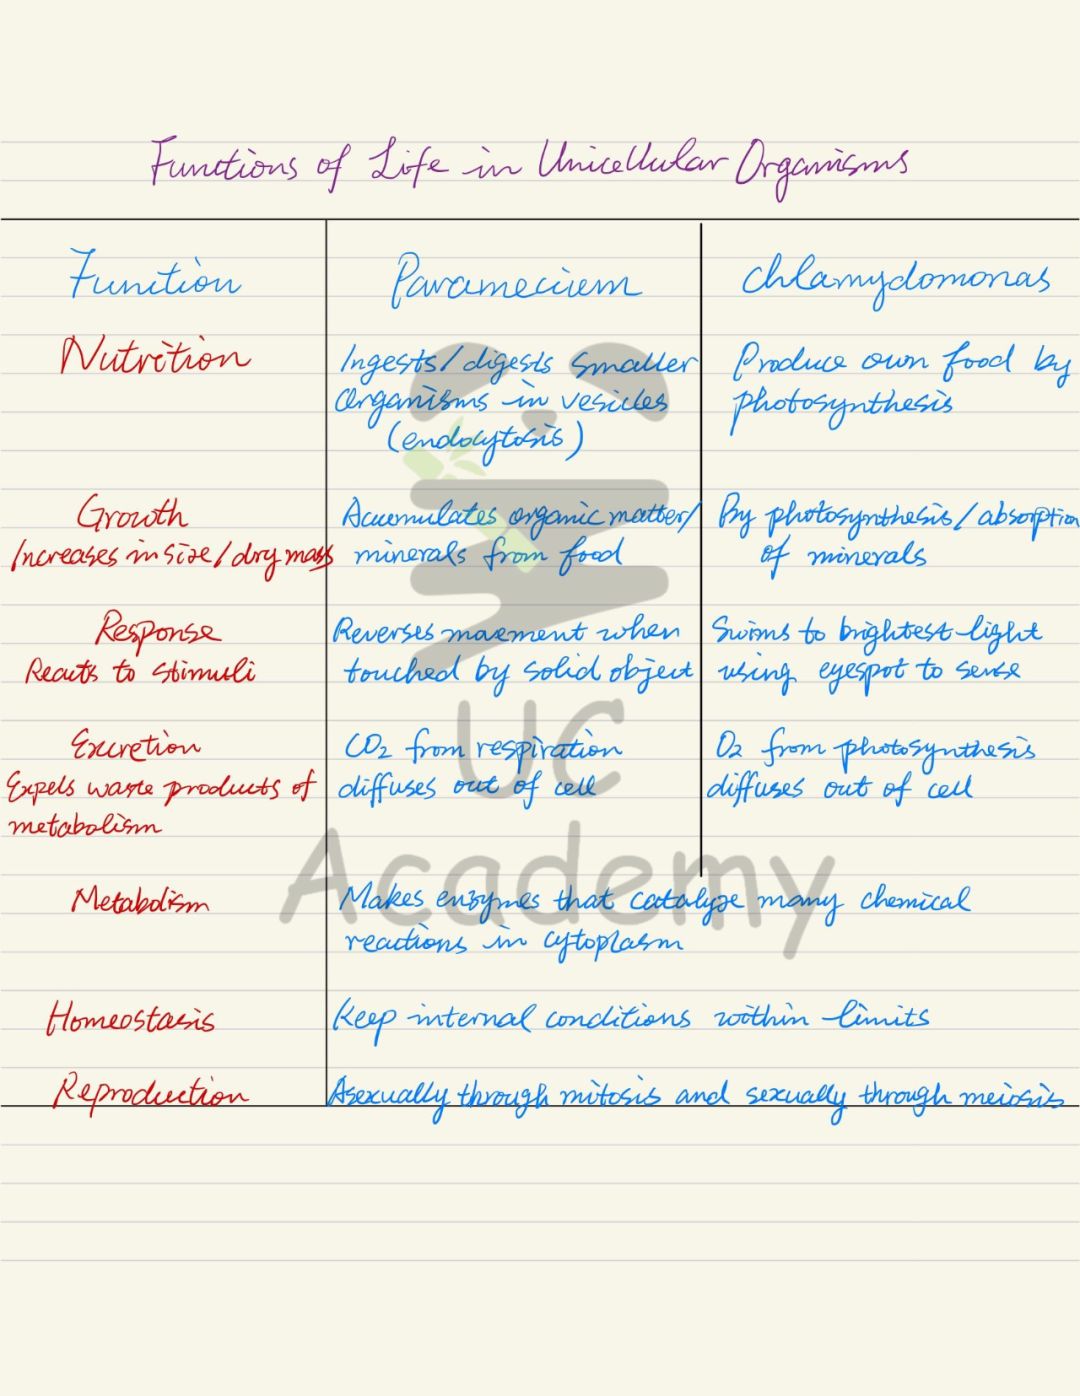 Functions of Life in Unicellular Organisms
Function
Paramecium
Chlamydomonas
Nutrition
Ingests/digests smaller
organisms in vesicles
(endocytosis)
Produce own food by
photosynthesis
Growth
Increases in size/dry mass
Accumulates organic matter/
minerals from food
By photosynthesis/absorption
of minerals
Response
Reacts to stimuli
Reverses movement when
touched by solid object
Swims to brightest light
using eyespot to sense
Excretion
Expels waste products of
metabolism
CO₂ from respiration
diffuses out of cell
O₂ from photosynthesis
diffuses out of cell
Metabolism
Makes enzymes that catalyze many chemical
reactions in cytoplasm
Homeostasis
Keep internal conditions within limits
Reproduction
Asexually through mitosis and sexually through meiosis
UC
Academy